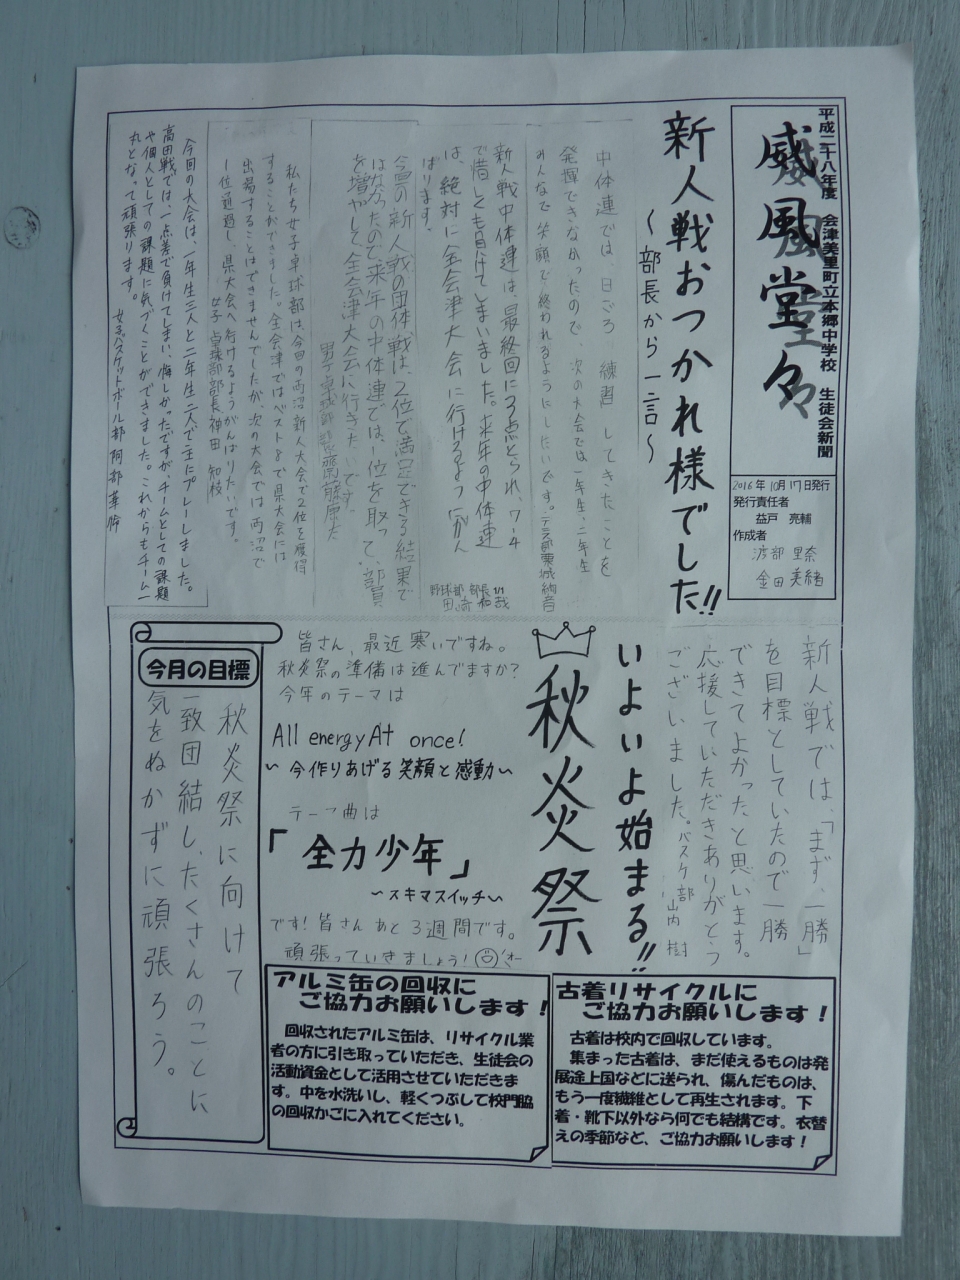 平成二十八年度 会津美里町立本郷中学校 生徒会新聞
威風堂々
2016年10月17日発行
発行責任者
益戸 亮輔
作成者
渡部 里奈
金田 美緒
新人戦おつかれ様でした!!
〜部長から一言〜
中体連では、日ごろ練習してきたことを
発揮できなかったので、次の大会では一年生、二年生
みんなで笑顔で終われるようにしたいです。テニス部栗城絢音
新人戦中体連は、最終回に3点とられ、7-4
で惜しくも負けてしまいました。来年の中体連
は、絶対に全会津大会に行けるようにがん
ばります。
野球部 部長
今回の新人戦の団体戦は、2位で満足できる結果で
はなかったので来年の中体連では、1位を取って、部員
を増やして全会津大会に行きたいです。
男子卓球部部長齋藤
私たち女子卓球部は、今回の両沼新人大会で2位を獲得
することができました。全会津ではベスト8で県大会には
出場することはできませんでしたが、次の大会では両沼で
1位通過し、県大会へ行けるようがんばりたいです。
女子卓球部部長神田 知枝
今回の大会は、一年生三人と二年生二人で主にプレーしました。
高田戦では、一点差で負けてしまい、悔しかったですが、チームとしての課題
や個人としての課題に気づくことができました。これからもチーム一
丸となって頑張ります。
女子バスケットボール部阿部
新人戦では、「まず、一勝」
を目標としていたので一勝
できてよかったと思います。
応援していただきありがとう
ございました。バスケ部 山内 樹
いよいよ始まる!!
秋炎祭
皆さん、最近寒いですね。
秋炎祭の準備は進んでますか?
今年のテーマは
All energy At once!
〜今作りあげる笑顔と感動〜
テーマ曲は
「全力少年」
〜スキマスイッチ〜
です!皆さんあと3週間です。
頑張っていきましょう!
今月の目標
秋炎祭に向けて
一致団結し、たくさんのことに
気をぬかずに頑張ろう。
古着リサイクルに
ご協力お願いします!
古着は校内で回収しています。
集まった古着は、まだ使えるものは発
展途上国などに送られ、傷んだものは、
もう一度繊維として再生されます。下
着・靴下以外なら何でも結構です。衣替
えの季節など、ご協力お願いします!
アルミ缶の回収に
ご協力お願いします!
回収されたアルミ缶は、リサイクル業
者の方に引き取っていただき、生徒会の
活動資金として活用させていただきま
す。中を水洗いし、軽くつぶして校門脇
の回収かごに入れてください。